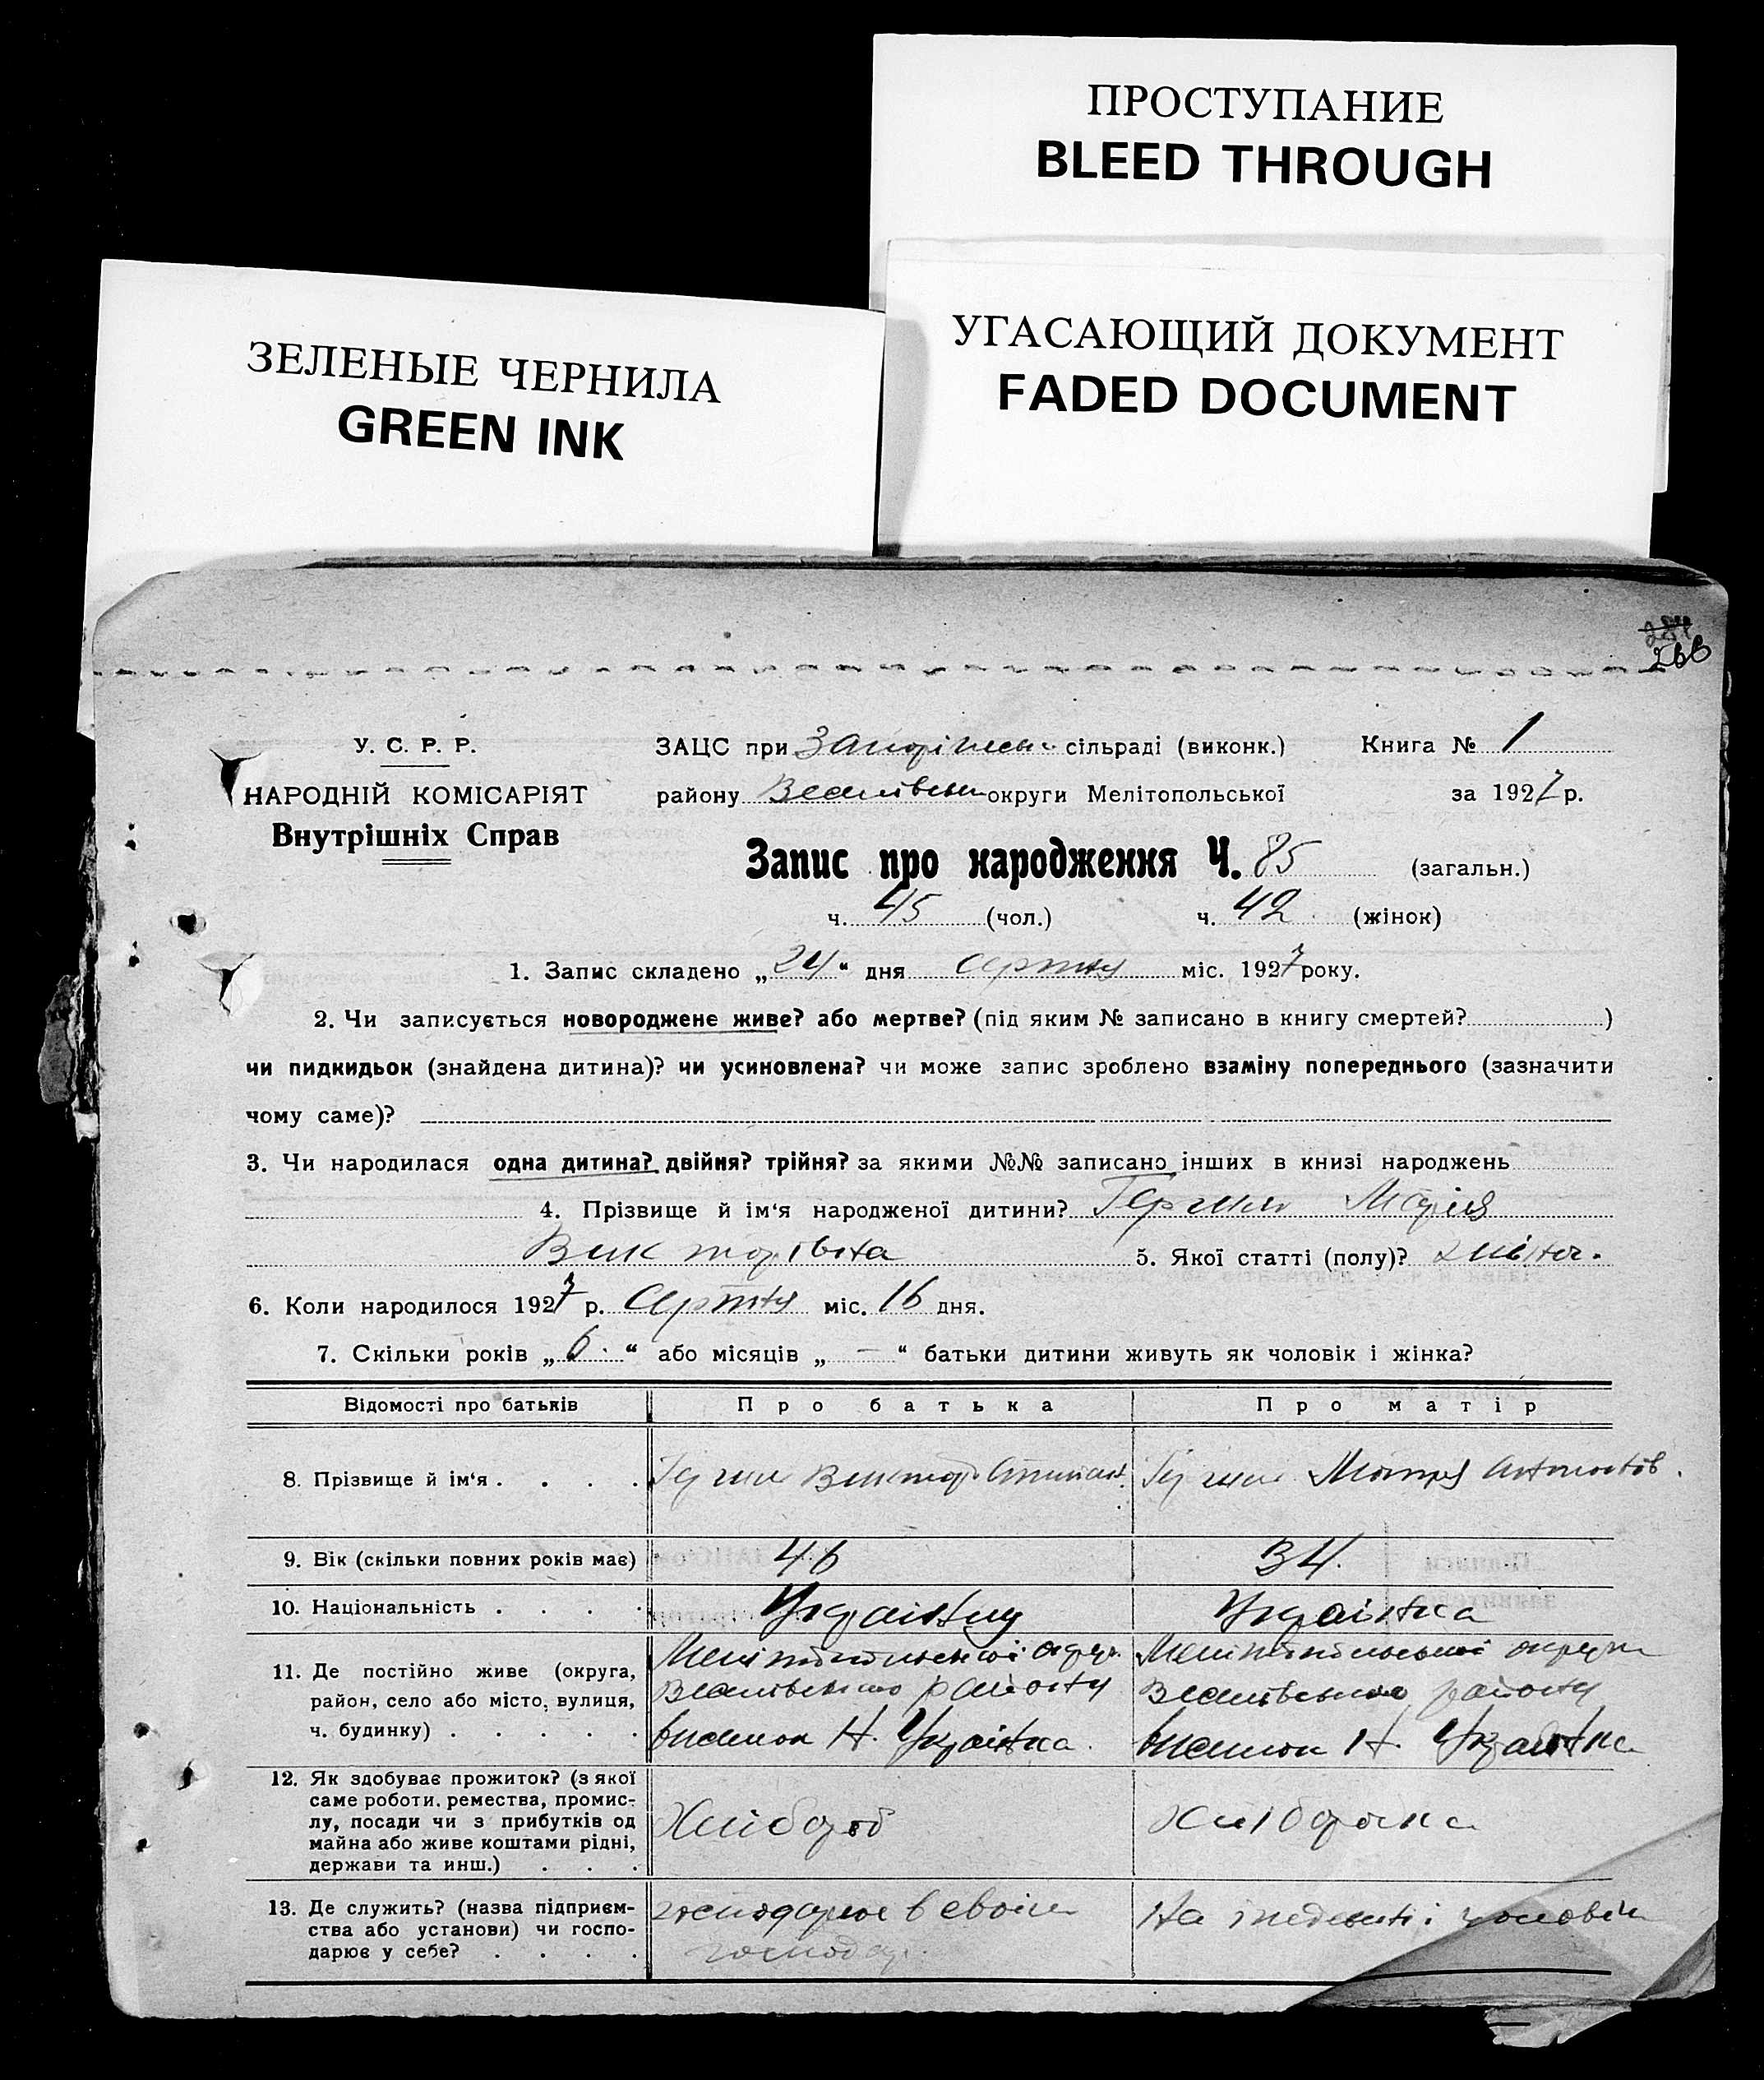 ПРОСТУПАНИЕ
BLEED THROUGH
УГАСАЮЩИЙ ДОКУМЕНТ
FADED DOCUMENT
ЗЕЛЕНЫЕ ЧЕРНИЛА
GREEN INK
266
У. С. Р. Р.
НАРОДНІЙ КОМІСАРІЯТ
Внутрішніх Справ
ЗАЦС при сільраді (виконк.) Книга № 1
району округи Мелітопольської за 1927 р.
Запис про народження Ч. 85 (загальн.)
ч. 45 (чол.) ч. 42 (жінок)
1. Запис складено „24“ дня серпня міс. 1927 року.
2. Чи записується новороджене живе? або мертве? (під яким № записано в книгу смертей? )
чи пидкидьок (знайдена дитина)? чи усиновлена? чи може запис зроблено взаміну попереднього (зазначити
чому саме)?
3. Чи народилася одна дитина? двійня? трійня? за якими №№ записано інших в книзі народжень
4. Прізвище й ім‘я народженої дитини? Марія
Вікторівна 5. Якої статті (полу)? жіноч.
6. Коли народилося 1927 р. серпня міс. 16 дня.
7. Скільки років „6.“ або місяців „—“ батьки дитини живуть як чоловік і жінка?
Відомості про батьків Про батька Про матір
8. Прізвище й ім‘я . . . . Виктор
9. Вік (скільки повних років має) 46 34.
10. Національність . . . . Українец Українка
11. Де постійно живе (округа, район, село або місто, вулиця, ч. будинку) . . . . .
Мелітопольської округ. Мелітопольської округи
району району
Н. Українка. Н. Українка
12. Як здобуває прожиток? (з якої
саме роботи, ремества, промис-
лу, посади чи з прибутків од
майна або живе коштами рідні,
держави та инш.) . . .
Хлібороб Хліборобка
13. Де служить? (назва підприєм-
ства або установи) чи госпо-
дарює у себе? . . . .
господарює в своїм На
господар.